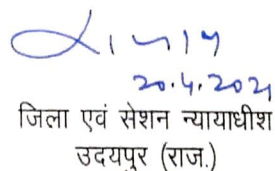 20.4.2021
जिला एवं सेशन न्यायाधीश
उदयपुर (राज.)